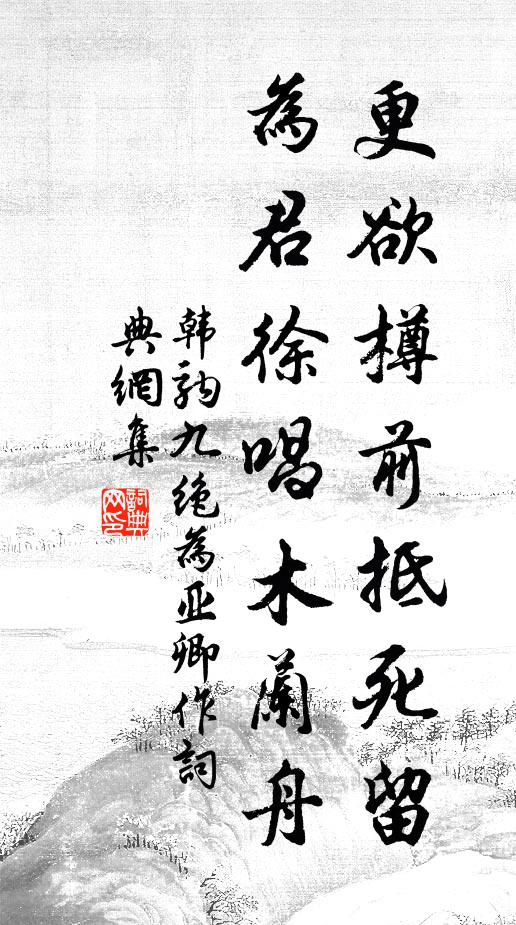 更欲樽前抵死留
為君徐唱木蘭舟
韩駒九绝為亚卿作詞
典網集
詞典網印